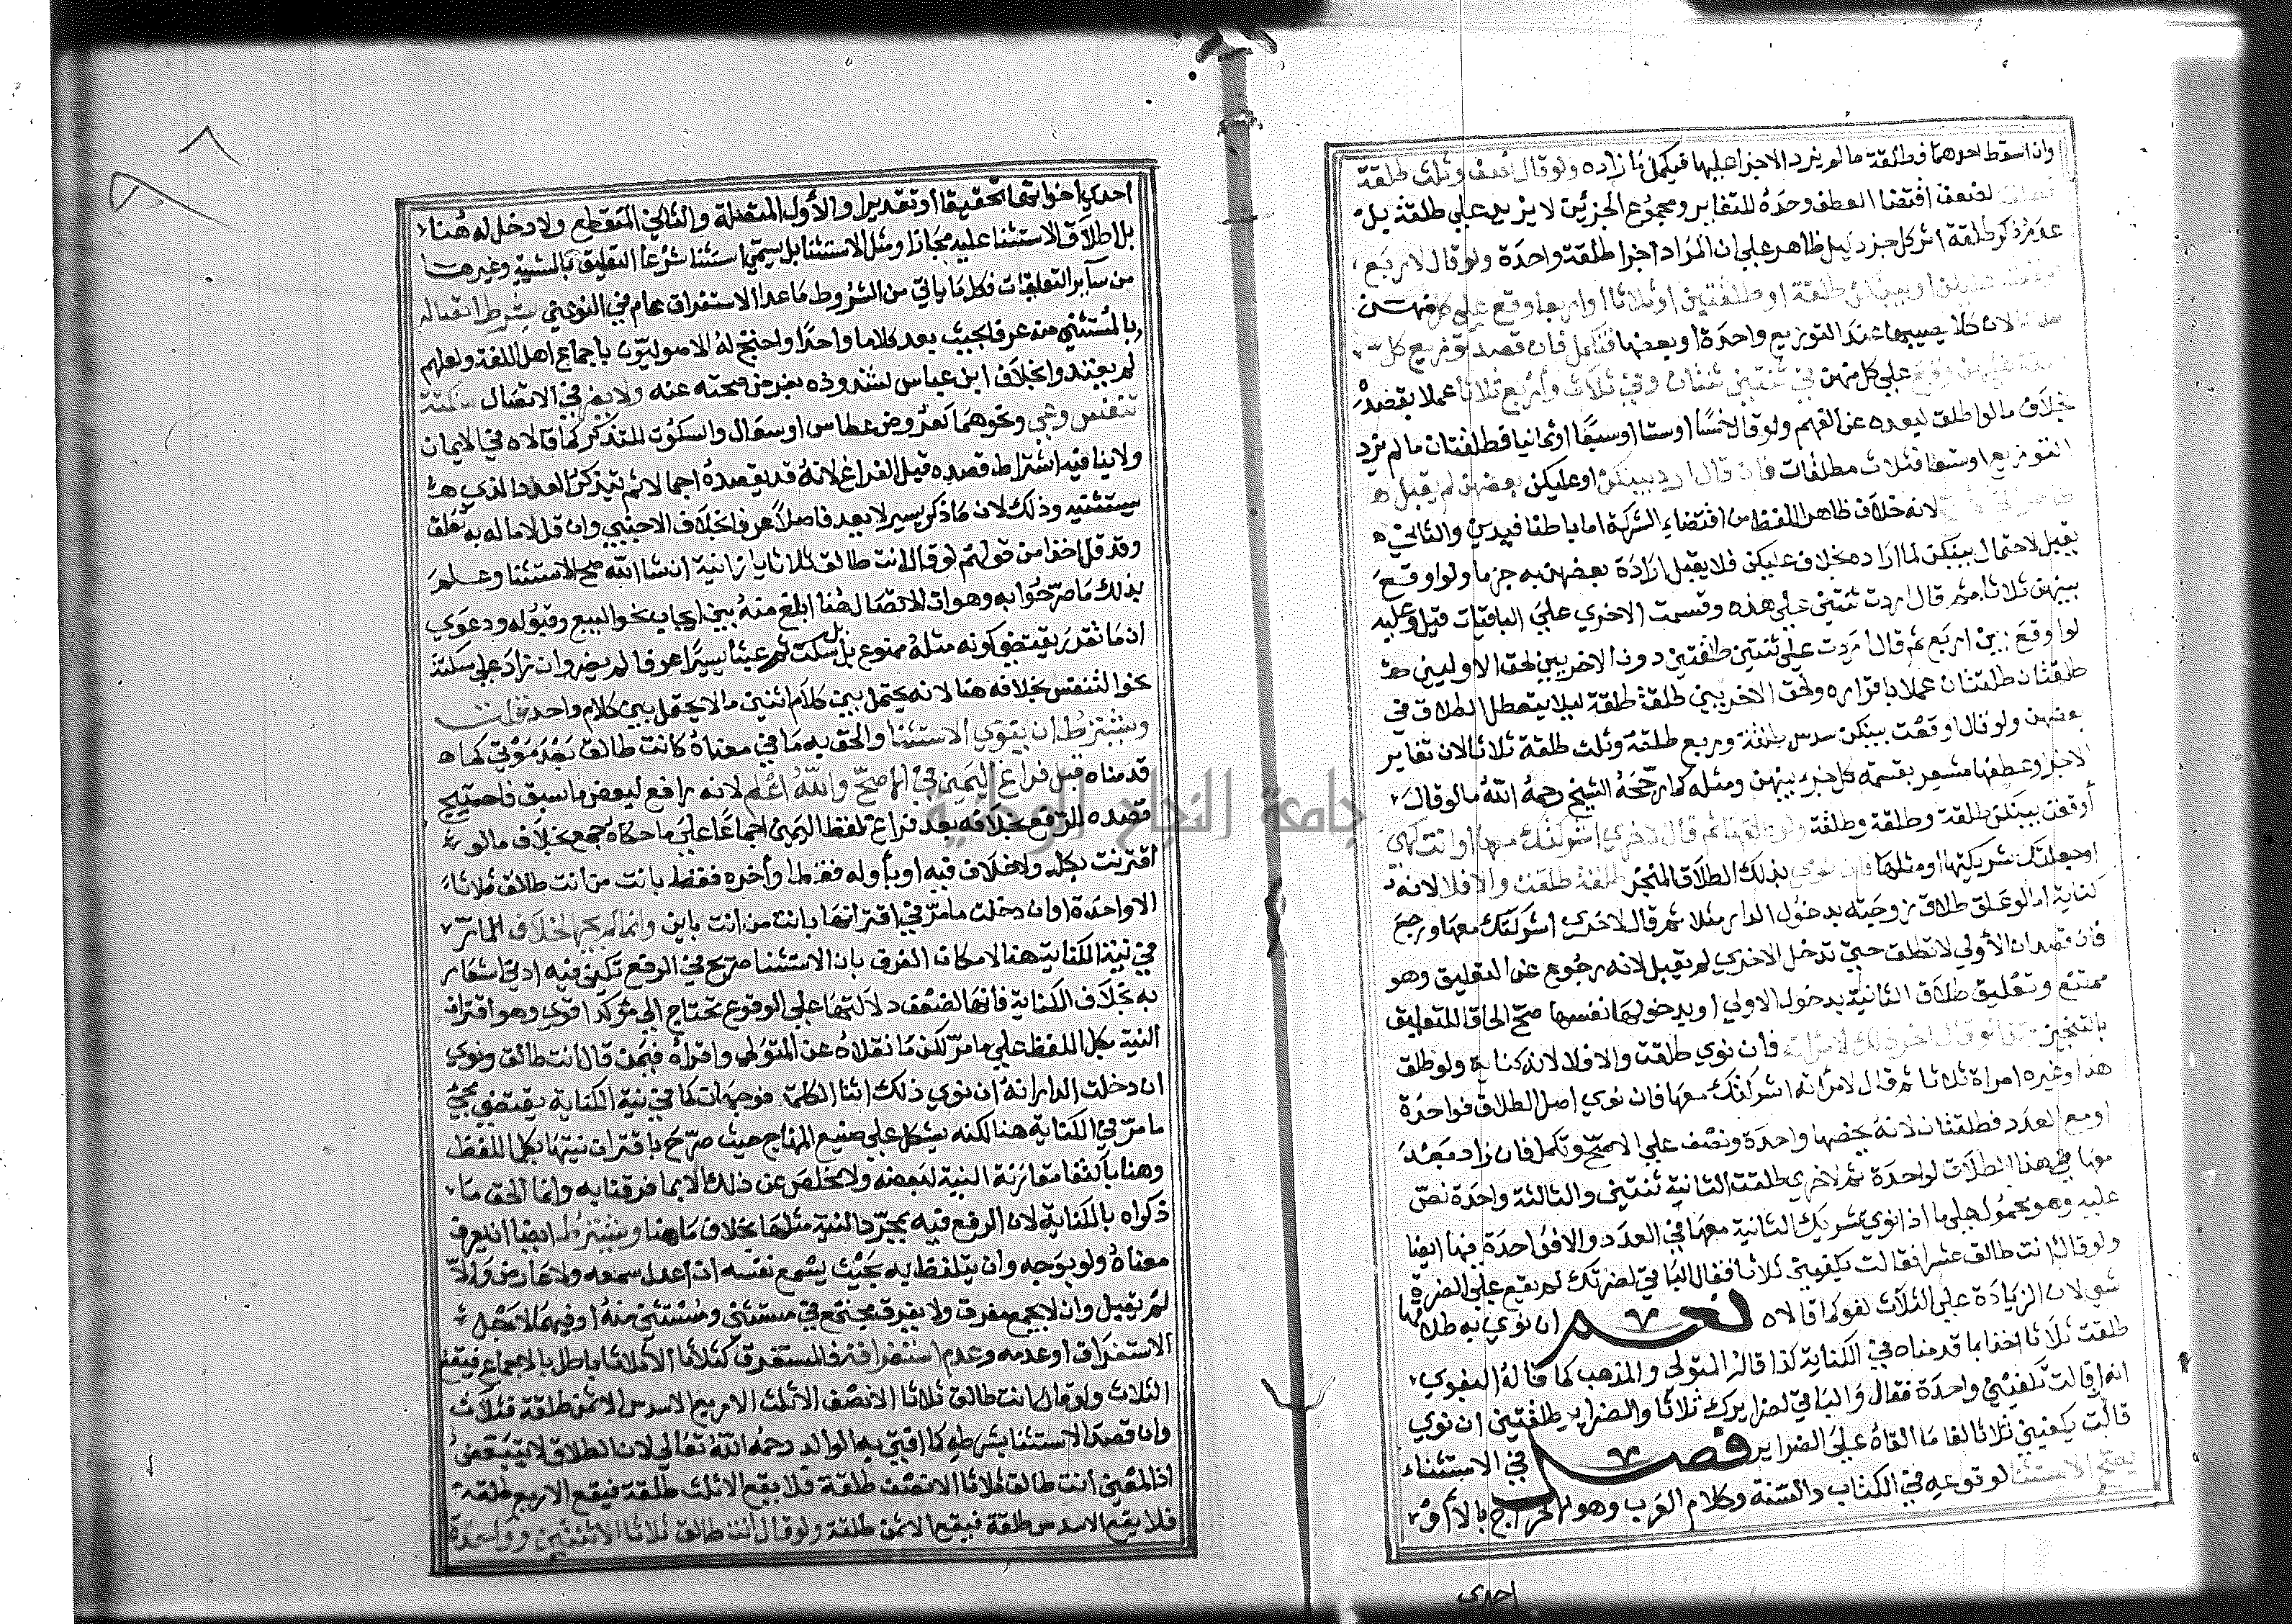 وان اسقط احدهما فطالقة ما لم يزد الاجزا عليها فيكمل ما زاده ولو قال نصف وثلث طلقة
لضعف اقتضا العطف وحده للتغاير ومجموع الجزئين لا يزيد على طلقة بل
عدم ذكر طلقة اثر كل جزء دليل ظاهر على ان المراد اجزا طلقة واحدة ولو قال لاربع
او بينكن طلقة او طلقتين او ثلاثا او اربعا وقع على كل منهن
لان كلا يصيبها عند التوزيع واحدة او بعضها فتكمل فان قصد توزيع كل
عليهن وقع على كل منهن في ثنتين ثنتان وفي ثلاث واربع ثلاثا عملا بقصده
بخلاف ما لو اطلق لبعده عن الفهم ولو قال خمسا او ستا او سبعا او ثمانيا فطلقتان ما لم يرد
التوزيع او تسعا فثلاث مطلقات فان قال ارد ببينكن او عليكن بعضهن لم يقبل
لانه خلاف ظاهر اللفظ من اقتضاء الشركة اما باطنا فيدين والثاني
يقبل لاحتمال بينكن لما اراده بخلاف عليكن فلا يقبل ارادة بعضهن به جزما ولو اوقع
بينهن ثلاثا ثم قال اردت ثنتين على هذه وقسمت الاخرى على الباقيات قبل وعليه
لو اوقع بين اربع ثم قال اردت على ثنتين طلقتين دون الاخريين لحق الاوليين
طلقتان طلقتان عملا باقراره ولحق الاخريين طلقة طلقة ليلا يتعطل الطلاق في
بعضهن ولو قال اوقعت بينكن سدس طلقة وربع طلقة وثلث طلقة ثلاثا لان تغاير
الاجزا وعطفها مشعر بقسمة كل جزء بينهن ومثله كما رجحه الشيخ رحمه الله ما لو قال
أوقعت بينكن طلقة وطلقة وطلقة ولو طلقها ثم قال لاخرى اشركتك معها او انت كهي
او جعلتك شريكتها او مثلها فان نوى بذلك الطلاق المنجز طلقة طلقت والا فلا لانه
كناية اما لو علق طلاق زوجته بدخول الدار مثلا ثم قال لاخرى اشركتك معها ورجع
فان قصد ان الأولى لا تطلق حتى تدخل الاخرى لم يقبل لانه رجوع عن التعليق وهو
ممتنع وتعليق طلاق الثانية بدخول الاولى او بدخولها نفسها صح الحاقا للتعليق
بالتنجيز ولو قال اخر ذلك لامراته فان نوى طلقت والا فلا لانه كناية ولو طلق
هذا وغيره امراة ثلاثا ثم قال لامراته اشركتك معها فان نوى اصل الطلاق فواحدة
او مع العدد فطلقتان لانه يخصها واحدة ونصف على الاصح وتكمل فان زاد بعد
معها في هذا الطلاق لواحدة ثم لاخرى طلقت الثانية ثنتين والثالثة واحدة نص
عليه وهو محمول على ما اذا نوى تشريك الثانية معها في العدد والا فواحدة فيها ايضا
ولو قال انت طالق عشرا فقالت يكفيني ثلاثا فقال الباقي لضرتك لم يقع على الضرة
شي لان الزيادة على الثلاث لغو كما قالاه نعم ان نوى به طلاقها
طلقت ثلاثا اخذا بما قدمناه في الكناية كذا قاله المتولي والمذهب كما قاله البغوي
انه اقالت تكفيني واحدة فقال والباقي لضرايرك ثلاثا والضراير طلقتين ان نوى
قالت يكفيني ثلاثا لغا ما القاه على الضراير فصل في الاستثناء
يصح الاستثنا لوقوعه في الكتاب والسنة وكلام العرب وهو الاخراج بالا أو
احدى
احدى اخواتها تحقيقا أو تقديرا والأول المتصلة والثاني المنقطع ولا دخل له هنا
بل اطلاق الاستثنا عليه مجازا ومثل الاستثنا بل يسمى استثنا شرعا التعليق بالمشية وغيرها
من سآير التعليقات فكل ما ياتي من الشروط ما عدا الاستغراق عام في النوعين بشرط اتصاله
بالمستثني منه عرفا بحيث يعد كلاما واحدا واحتج له الاصوليون باجماع اهل اللغة ولعلهم
لم يعتدوا بخلاف ابن عباس لشذوذه بفرض صحته عنه ولا يضر في الاتصال سكتة
تنفس وعي ونحوهما كعروض عطاس او سعال والسكوت للتذكر كما قالاه في الايمان
ولا ينافيه اشتراط قصده قبل الفراغ لانه قد يقصده اجمالا ثم يتذكر العدد الذي
يستثنيه وذلك لان ما ذكر يسير لا يعد فاصلا عرفا بخلاف الاجنبي وان قل لا ما له به تعلق
وقد قل اخذا من قولهم لو قال انت طالق ثلاثا يا زانية ان شا الله صح الاستثنا وعلم
بذلك ما صرحوا به وهو ان الاتصال هنا ابلغ منه بين ايجاب نحو البيع وقبوله ودعوى
ان ما تقرر يقتضي كونه مثله ممنوع بل لو سكت ثم عبثا يسيرا عرفا لم يضر وان زاد على سكتة
نحو التنفس بخلافه هنا لانه يحتمل بين كلام اثنين ما لا يحتمل بين كلام واحد قلت
ويشترط ان ينوي الاستثنا والحق به ما في معناه كانت طالق بعد موتي كما
قدمناه قبل فراغ اليمين في الاصح والله أعلم لانه رافع لبعض ما سبق فاحتيج
قصده للرفع بخلافه بعد فراغ لفظ اليمين اجماعا على ما حكاه جمع بخلاف ما لو
اقترنت بكله ولا خلاف فيه او بأوله فقط او أخره فقط بانت من انت طالق ثلاثا
الا واحدة او ان دخلت ما مر في اقترانها بانت من انت باين وانما لم يجر الخلاف المار
في نية الكناية هنا لامكان الفرق بان الاستثنا صريح في الرفع تكفي فيه ادنى اشعار
به بخلاف الكناية فانها لضعف دلالتها على الوقوع تحتاج الى مؤكد اقوى وهو اقتران
النية بكل اللفظ على ما مر لكن ما نقلاه عن المتولي واقراه فيمن قال انت طالق ونوى
ان دخلت الدار انه ان نوى ذلك اثنا الكلمة فوجهان كما في نية الكناية يقتضي مجي
ما مر في الكناية هنا لكنه يشكل على صنيع المنهاج حيث صرح باقتران نيتها بكل اللفظ
وهنا باكتفا مقارنة النية لبعضه ولا مخلص عن ذلك الا بما فرقنا به وانما الحق ما
ذكراه بالكناية لان الرفع فيه بمجرد النية مثلها بخلاف ما هنا ويشترط ايضا ان يعرف
معناه ولو بوجه وان يتلفظ به بحيث يسمع نفسه ان اعتدل سمعه ولا عارض والا
لم يقبل وان لا يجمع مفرق ولا يفرق مجتمع في مستثنى ومستثنى منه او فيهما لاجل
الاستغراق او عدمه وعدم استغراقه فالمستغرق كثلاثا الا ثلاثا باطل بالاجماع فيقع
الثلاث ولو قال انت طالق ثلاثا الا نصف الا ثلث الا ربع الا سدس الا ثمن طلقة فثلاث
وان قصد الاستثنا بشرطه كما افتى به الوالد رحمه الله تعالى لان الطلاق لا يتبعض
اذ المعنى انت طالق ثلاثا الا نصف طلقة فلا يقع الا ثلث طلقة فيقع الا ربع طلقة
فلا يقع الا سدس طلقة فيقع الا ثمن طلقة ولو قال انت طالق ثلاثا الا ثنتين وواحدة
جامعة النجاح الوطنية